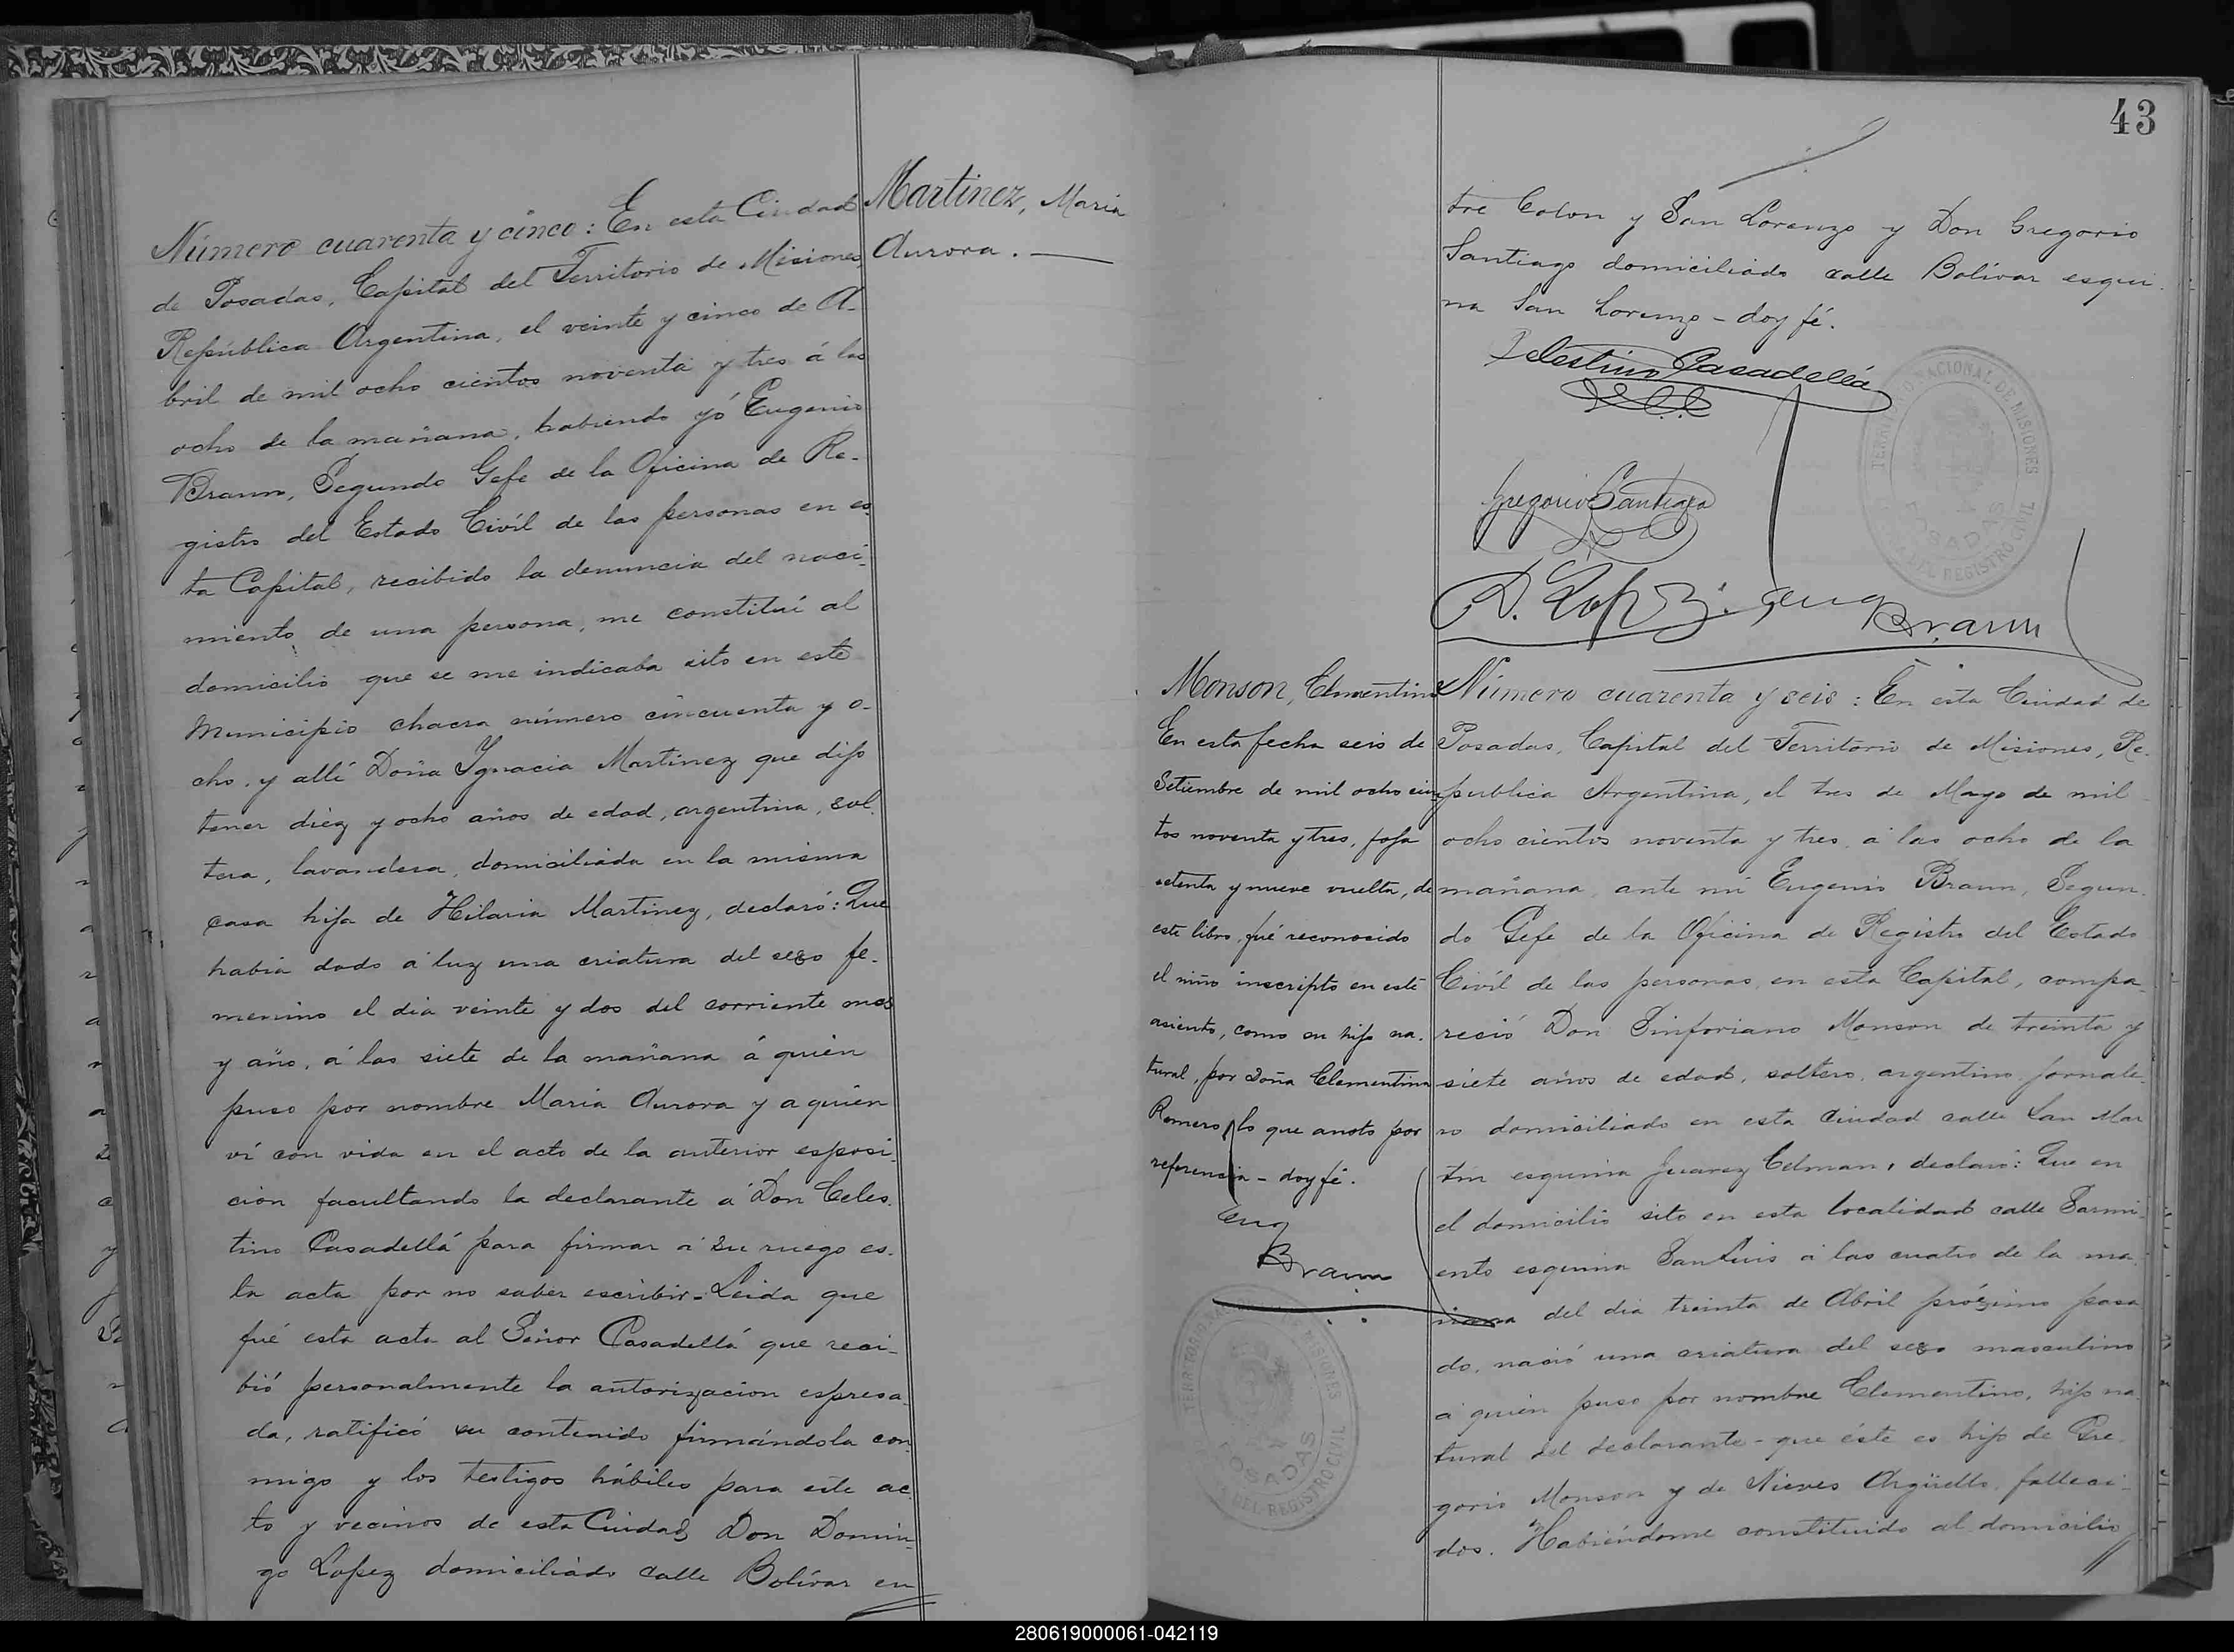 Martinez, Maria
Aurora.
Número cuarenta y cinco: En esta Ciudad
de Posadas, Capital del Territorio de Misiones,
República Argentina, el veinte y cinco de A-
bril de mil ocho cientos noventa y tres á las
ocho de la mañana, habiendo yó Eugenio
Braun, Segundo Gefe de la Oficina de Re-
gistro del Estado Civíl de las personas en es
ta Capital, recibido la denuncia del naci-
miento de una persona, me constituí al
domicilio que se me indicaba sito en este
Municipio chacra número cincuenta y o-
cho, y allí Doña Ygnacia Martinez que dijo
tener diez y ocho años de edad, argentina, sol-
tera, lavandera, domiciliada en la misma
casa hija de Hilaria Martinez, declaró: Que
habia dado á luz una criatura del sexo fe-
menino el dia veinte y dos del corriente mes
y año, á las siete de la mañana á quien
puso por nombre Maria Aurora y a quien
ví con vida en el acto de la anterior esposi-
cion facultando la declarante á Don Celes-
tino Casadellá para firmar á su ruego es-
ta acta por no saber escribir - Leida que
fué esta acta al Señor Casadellá que reci-
bió personalmente la autorizacion espresa-
da, ratificó su contenido firmándola con
migo y los testigos hábiles para este ac
to y vecinos de esta Ciudad, Don Domin-
go Lopez domiciliado calle Bolívar en
43
tre Colon y San Lorenzo y Don Gregorio
Santiago domiciliado calle Bolívar esqui-
na San Lorenzo - doy fé.
Celestino Casadellá
Gregorio Santiago
D. Lopez
Eug Braun
TERRITORIO NACIONAL DE MISIONES
POSADAS
DEL REGISTRO CIVIL
Monson, Clementino
En esta fecha seis de
Setiembre de mil ocho cien
tos noventa y tres, foja
setenta y nueve vuelta, de
este libro, fué reconocido
el niño inscripto en este
asiento, como su hijo na-
tural, por Doña Clementina
Romero, lo que anoto por
referencia - doy fé.
Eug
Braun
TERRITORIO NACIONAL DE MISIONES
POSADAS
DEL REGISTRO CIVIL
Número cuarenta y seis: En esta Ciudad de
Posadas, Capital del Territorio de Misiones, Re-
publica Argentina, el tres de Mayo de mil
ocho cientos noventa y tres, á las ocho de la
mañana, ante mí Eugenio Braun, Segun-
do Gefe de la Oficina de Registro del Estado
Civíl de las personas en esta Capital, compa-
reció Don Sinforiano Monson de treinta y
siete años de edad, soltero, argentino, jornale-
ro domiciliado en esta Ciudad calle San Mar
tin esquina Juarez Celman, declaró: Que en
el domicilio sito en esta localidad calle Sarmi-
ento esquina San Luis á las cuatro de la ma-
ñana del dia treinta de Abril próximo pasa
do, nació una criatura del sexo masculino
á quien puso por nombre Clementino, hijo na
tural del declarante - que éste es hijo de Gre
gorio Monson y de Nieves Argüello, falleci-
dos. Habiéndome constituido al domicilio
280619000061-042119